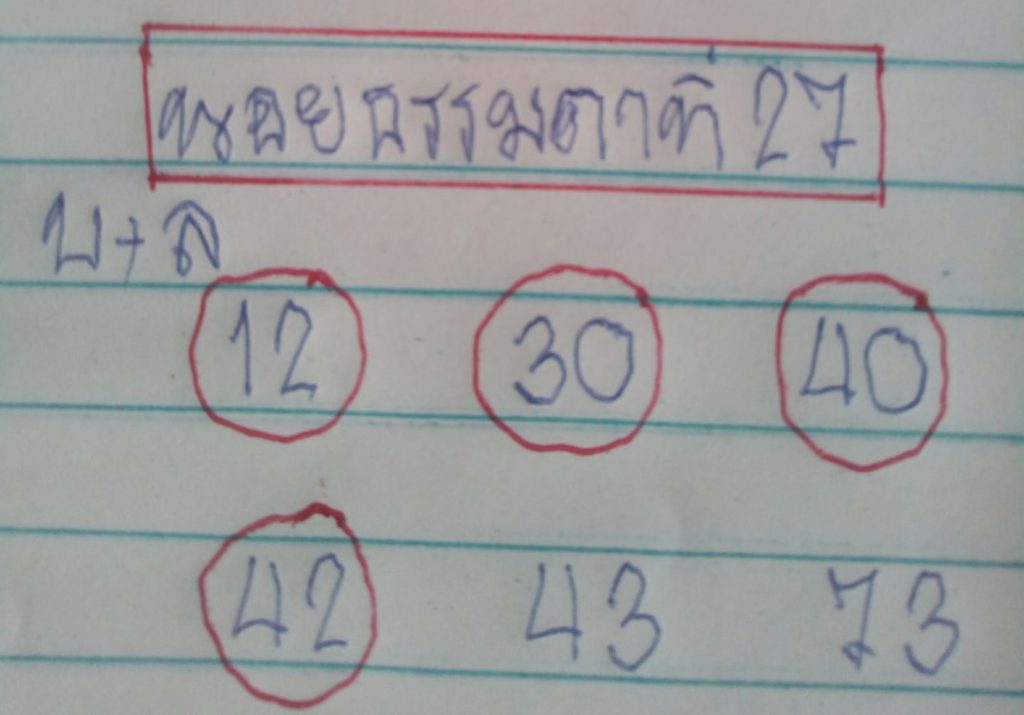 หนอยธรรมดาที่ 27
บ+ล
12 30 40
42 43 73